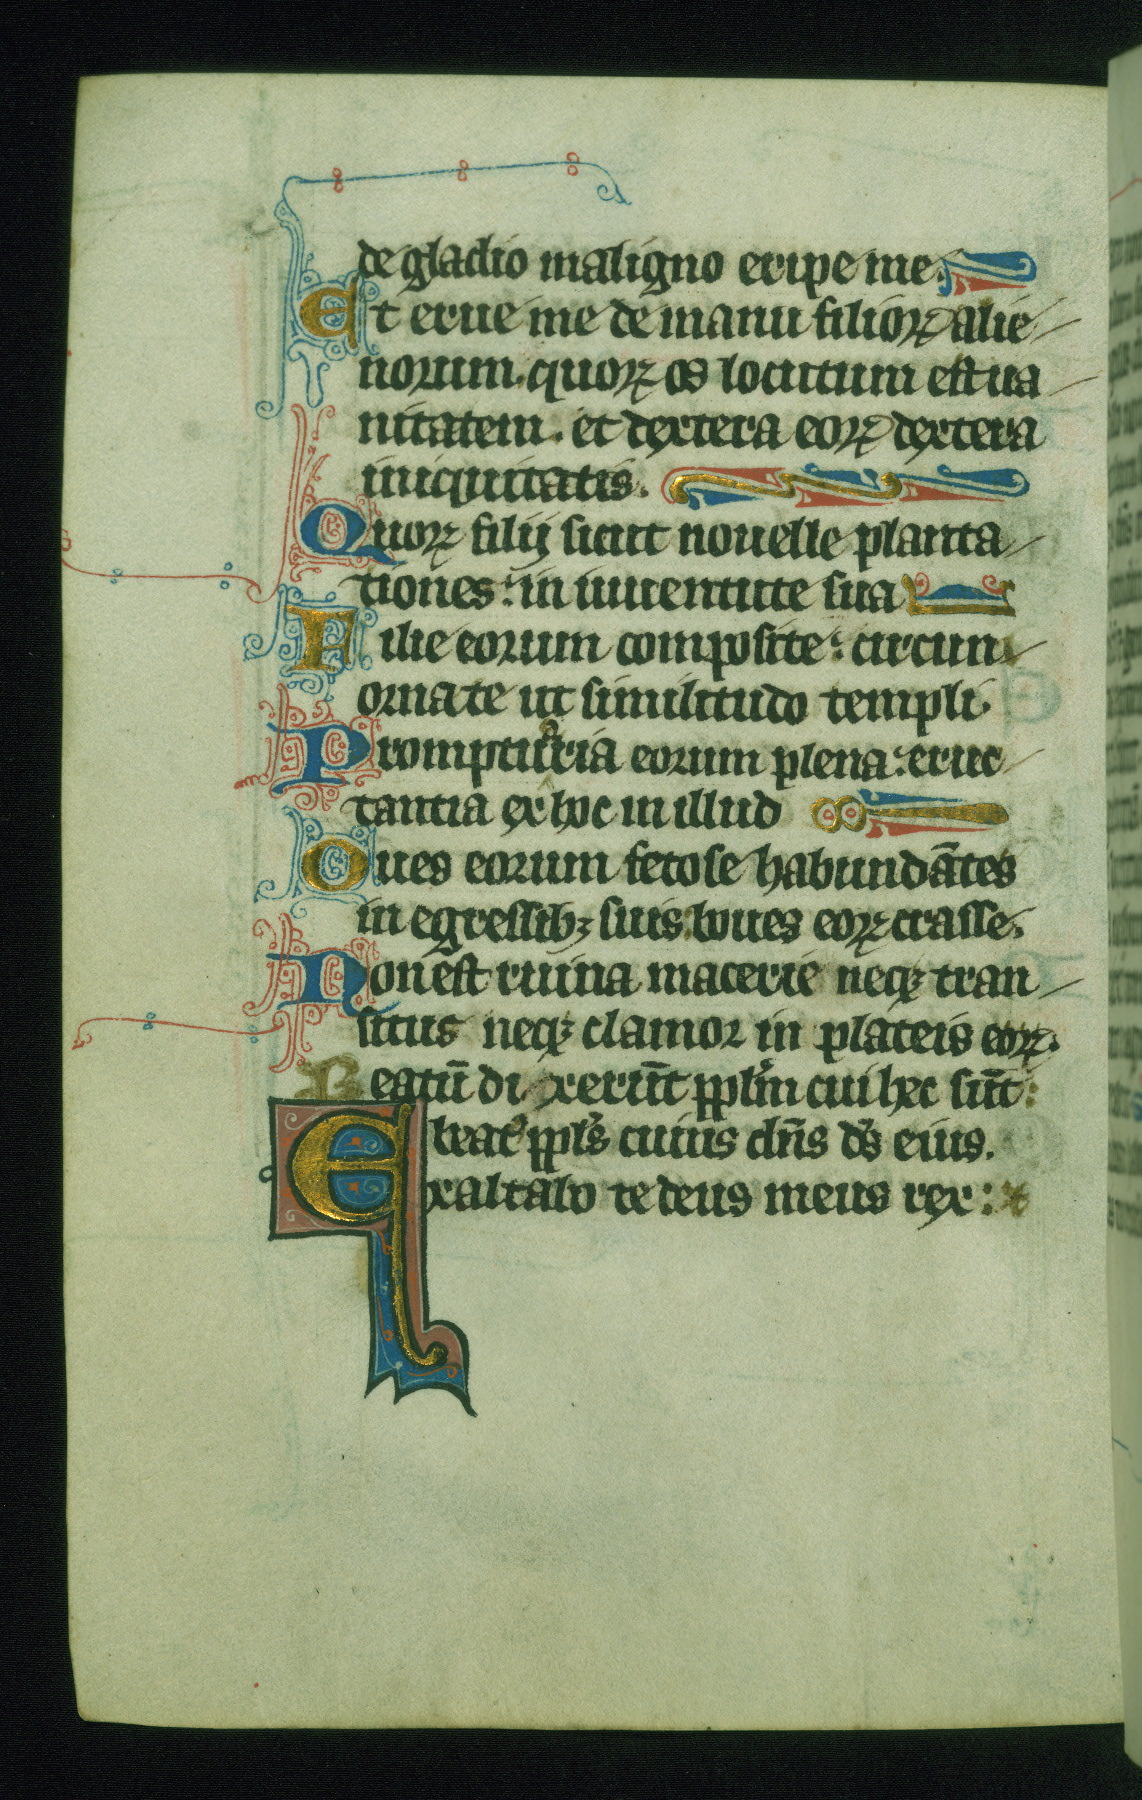 de gladio maligno eripe me.
Et erue me de manu filioꝝ alie
norum. quoꝝ os locutum est ua
nitatem. et dextera eoꝝ dextera
iniquitatis.
Quoꝝ filij sicut nouelle planta
tiones: in iuuentute sua
Filie eorum composite: circum
ornate ut similitudo templi.
Promptuaria eorum plena: eruc
tantia ex hoc in illud
Oues eorum fetose habundātes
in egressibꝫ suis. boues eoꝝ crasse.
Non est ruina macerie neqꝫ tran
situs neqꝫ clamor in plateis eoꝝ.
Beatū dixerūt pplm cui hec sūt:
beatꝰ ppls cuius dn̄s ds eius.
Exaltabo te deus meus rex: